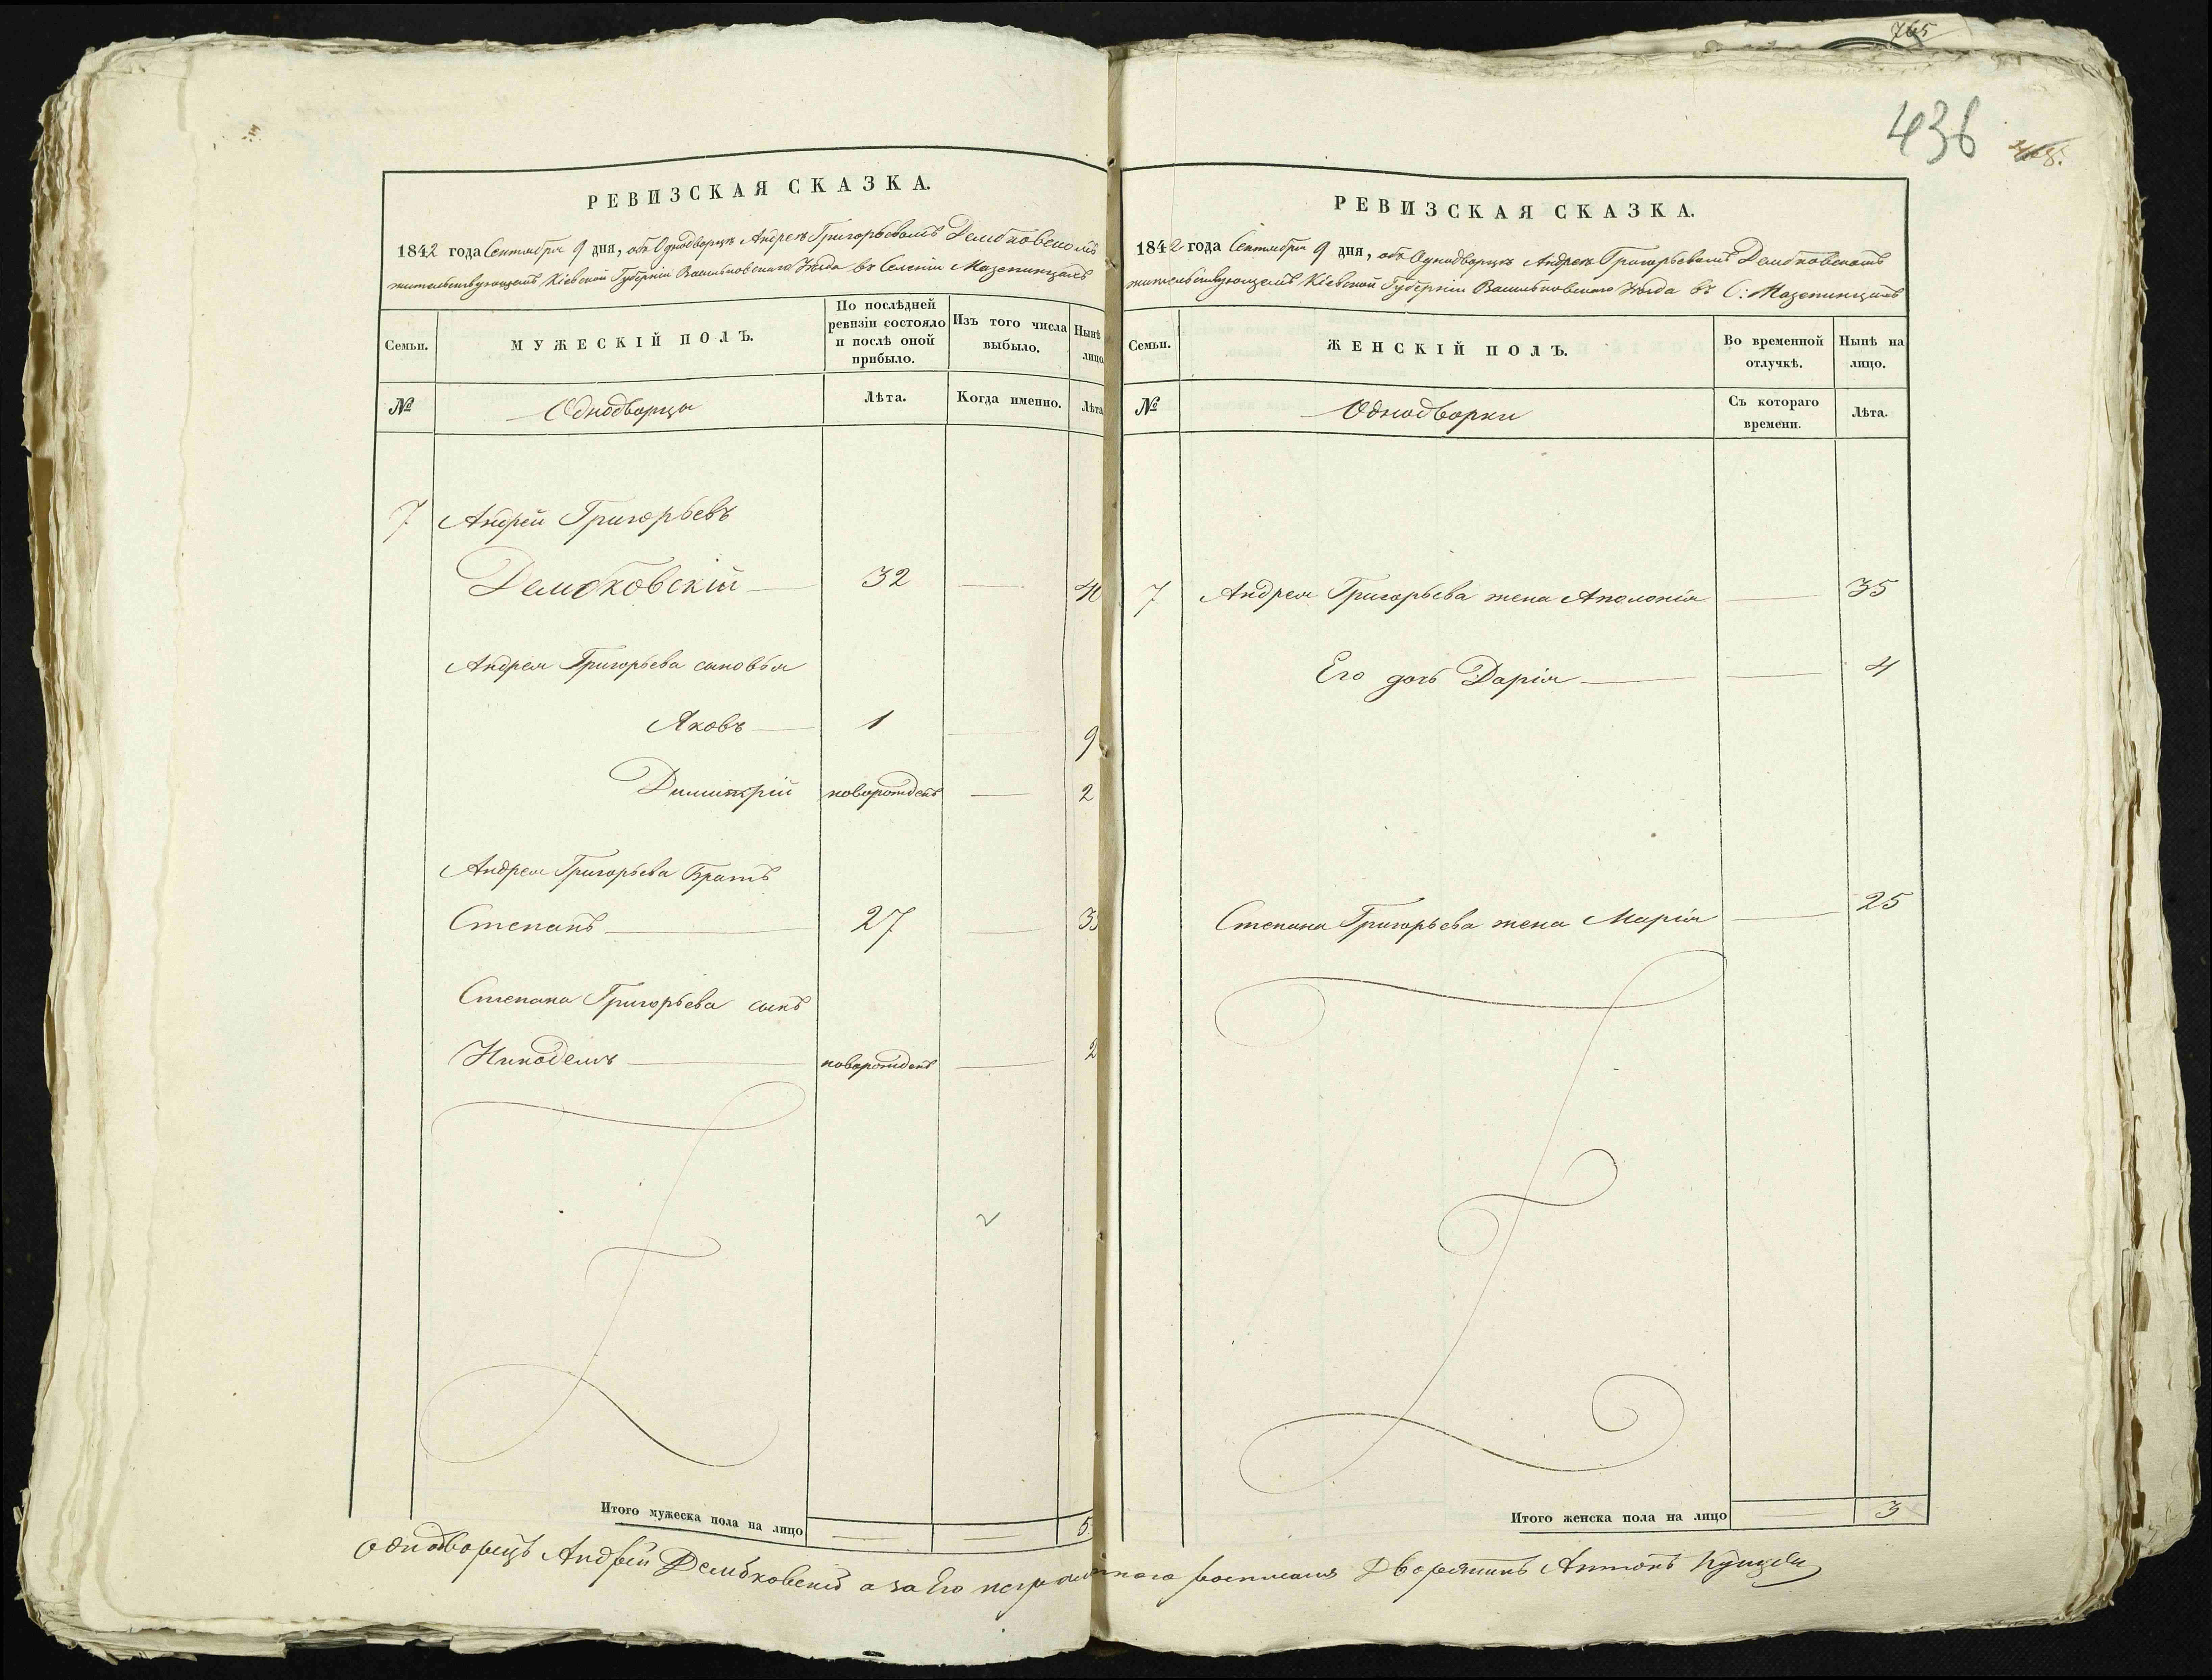 765
436
РЕВИЗСКАЯ СКАЗКА.
1842 года Сентября 9 дня, объ Однодворцѣ Андреѣ Григорьевомъ Дембковскомъ
жительствующемъ Кіевской Губерніи Васильковскаго Уѣзда въ Селеніи Мазепинцахъ
Семьи.
МУЖЕСКІЙ ПОЛЪ.
По послѣдней ревизіи состояло и послѣ оной прибыло.
Изъ того числа выбыло.
Нынѣ лицо
№
Однодворцы
Лѣта.
Когда именно.
Лѣта
7 Андрей Григорьевъ
Дембковскій — 32 — 40
Андрея Григорьева сыновья
Яковъ — 1 — 9
Димитрій новорожденъ — 2
Андрея Григорьева Братъ
Степанъ — 27 — 35
Степана Григорьева сынъ
Никодемъ — новорожденъ — 2
Итого мужеска пола на лицо — — 5
РЕВИЗСКАЯ СКАЗКА.
1842 года Сентября 9 дня, объ Однодворцѣ Андреѣ Григорьевомъ Дембковскомъ
жительствующемъ Кіевской Губерніи Васильковскаго Уѣзда въ С: Мазепинцахъ
Семьи.
ЖЕНСКІЙ ПОЛЪ.
Во временной отлучкѣ.
Нынѣ на лицо.
№
Однодворки
Съ котораго времени.
Лѣта.
7 Андрея Григорьева жена Аполонія — 35
Его дочь Дарія — — 4
Степана Григорьева жена Марія — 25
Итого женска пола на лицо — 3
Однодворецъ Андрей Дембковскій а за Его неграмотнаго росписался Дворянинъ Антонъ